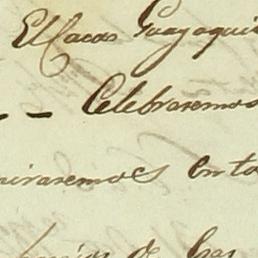 El Cacao Guayaqui
- - Celebraremos
iraremos en to
de las